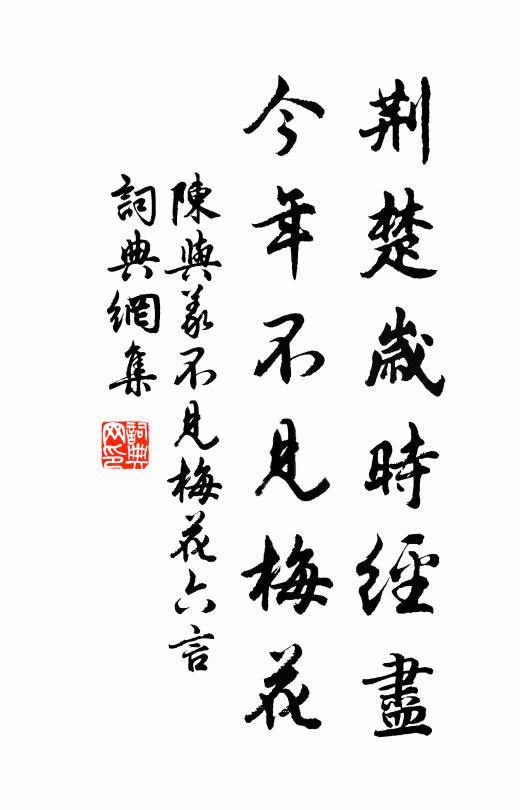 荆楚歲時經盡
今年不見梅花
陳與義不見梅花六言
詞典網集
詞典网印